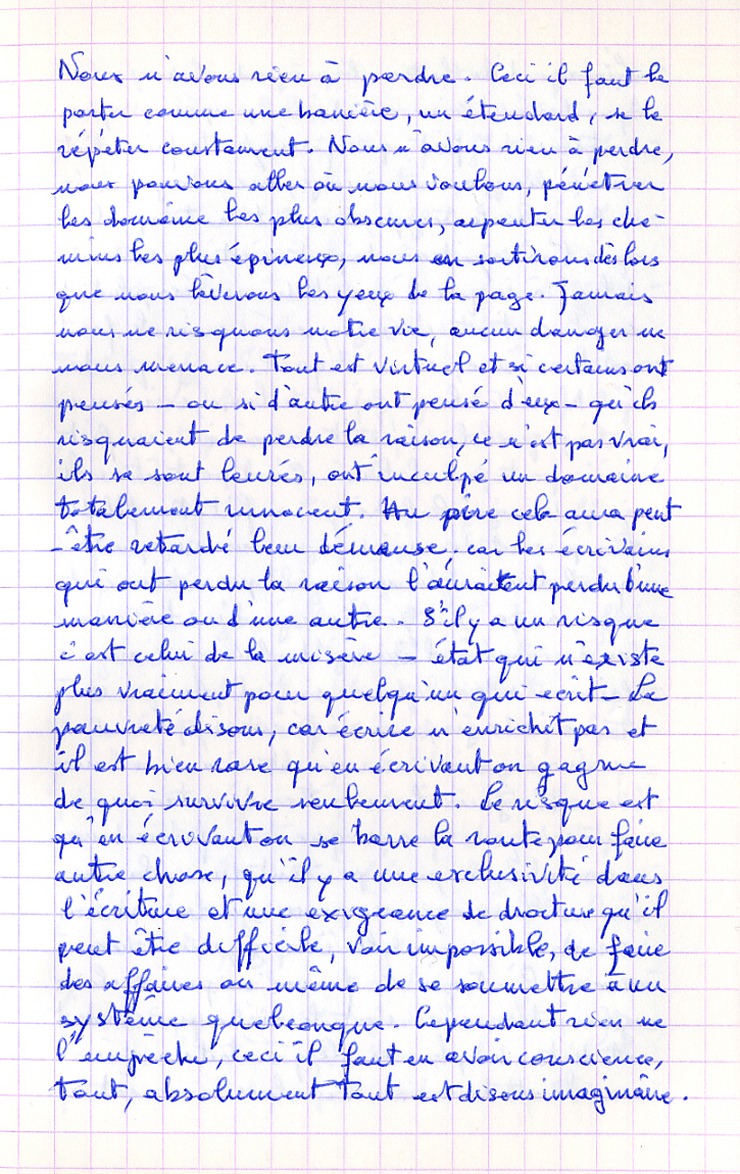 Nous n'avons rien à perdre. Ceci il faut le
porter comme une banière, un étendard, se le
répéter constament. Nous n'avons rien à perdre,
nous pouvons aller où nous voulons, pénétrer
les domaine les plus obscures, arpenter les che-
mins les plus épineux, nous en sortirons dès lors
que nous lèverons les yeux de la page. Jamais
nous ne risquons notre vie, aucun danger ne
nous menace. Tout est virtuel et si certains ont
pensés - ou si d'autre ont pensé d'eux - qu'ils
risquaient de perdre la raison, ce n'est pas vrai,
ils se sont leurrés, ont inculpé un domaine
totalement innocent. Au pire cela aura peut
-être retardé leur démense, car les écrivains
qui ont perdu la raison l'auraitent perdu d'une
manière ou d'une autre. S'il y a un risque
c'est celui de la misère - état qui n'existe
plus vraiment pour quelqu'un qui ecrit - La
pauvreté disons, car écrire n'enrichit pas et
il est bien rare qu'en écrivant on gagne
de quoi survivre seulement. Le risque est
qu'en écrivant on se barre la route pour faire
autre chose, qu'il y a une exclusivité dans
l'écriture et une exigeance de droiture qu'il
peut être difficile, voir impossible, de faire
des affaires ou même de se soumettre à un
système quelconque. Cependant rien ne
l'empèche, ceci il faut en avoir conscience,
Tout, absolument tout est disons imaginaire.